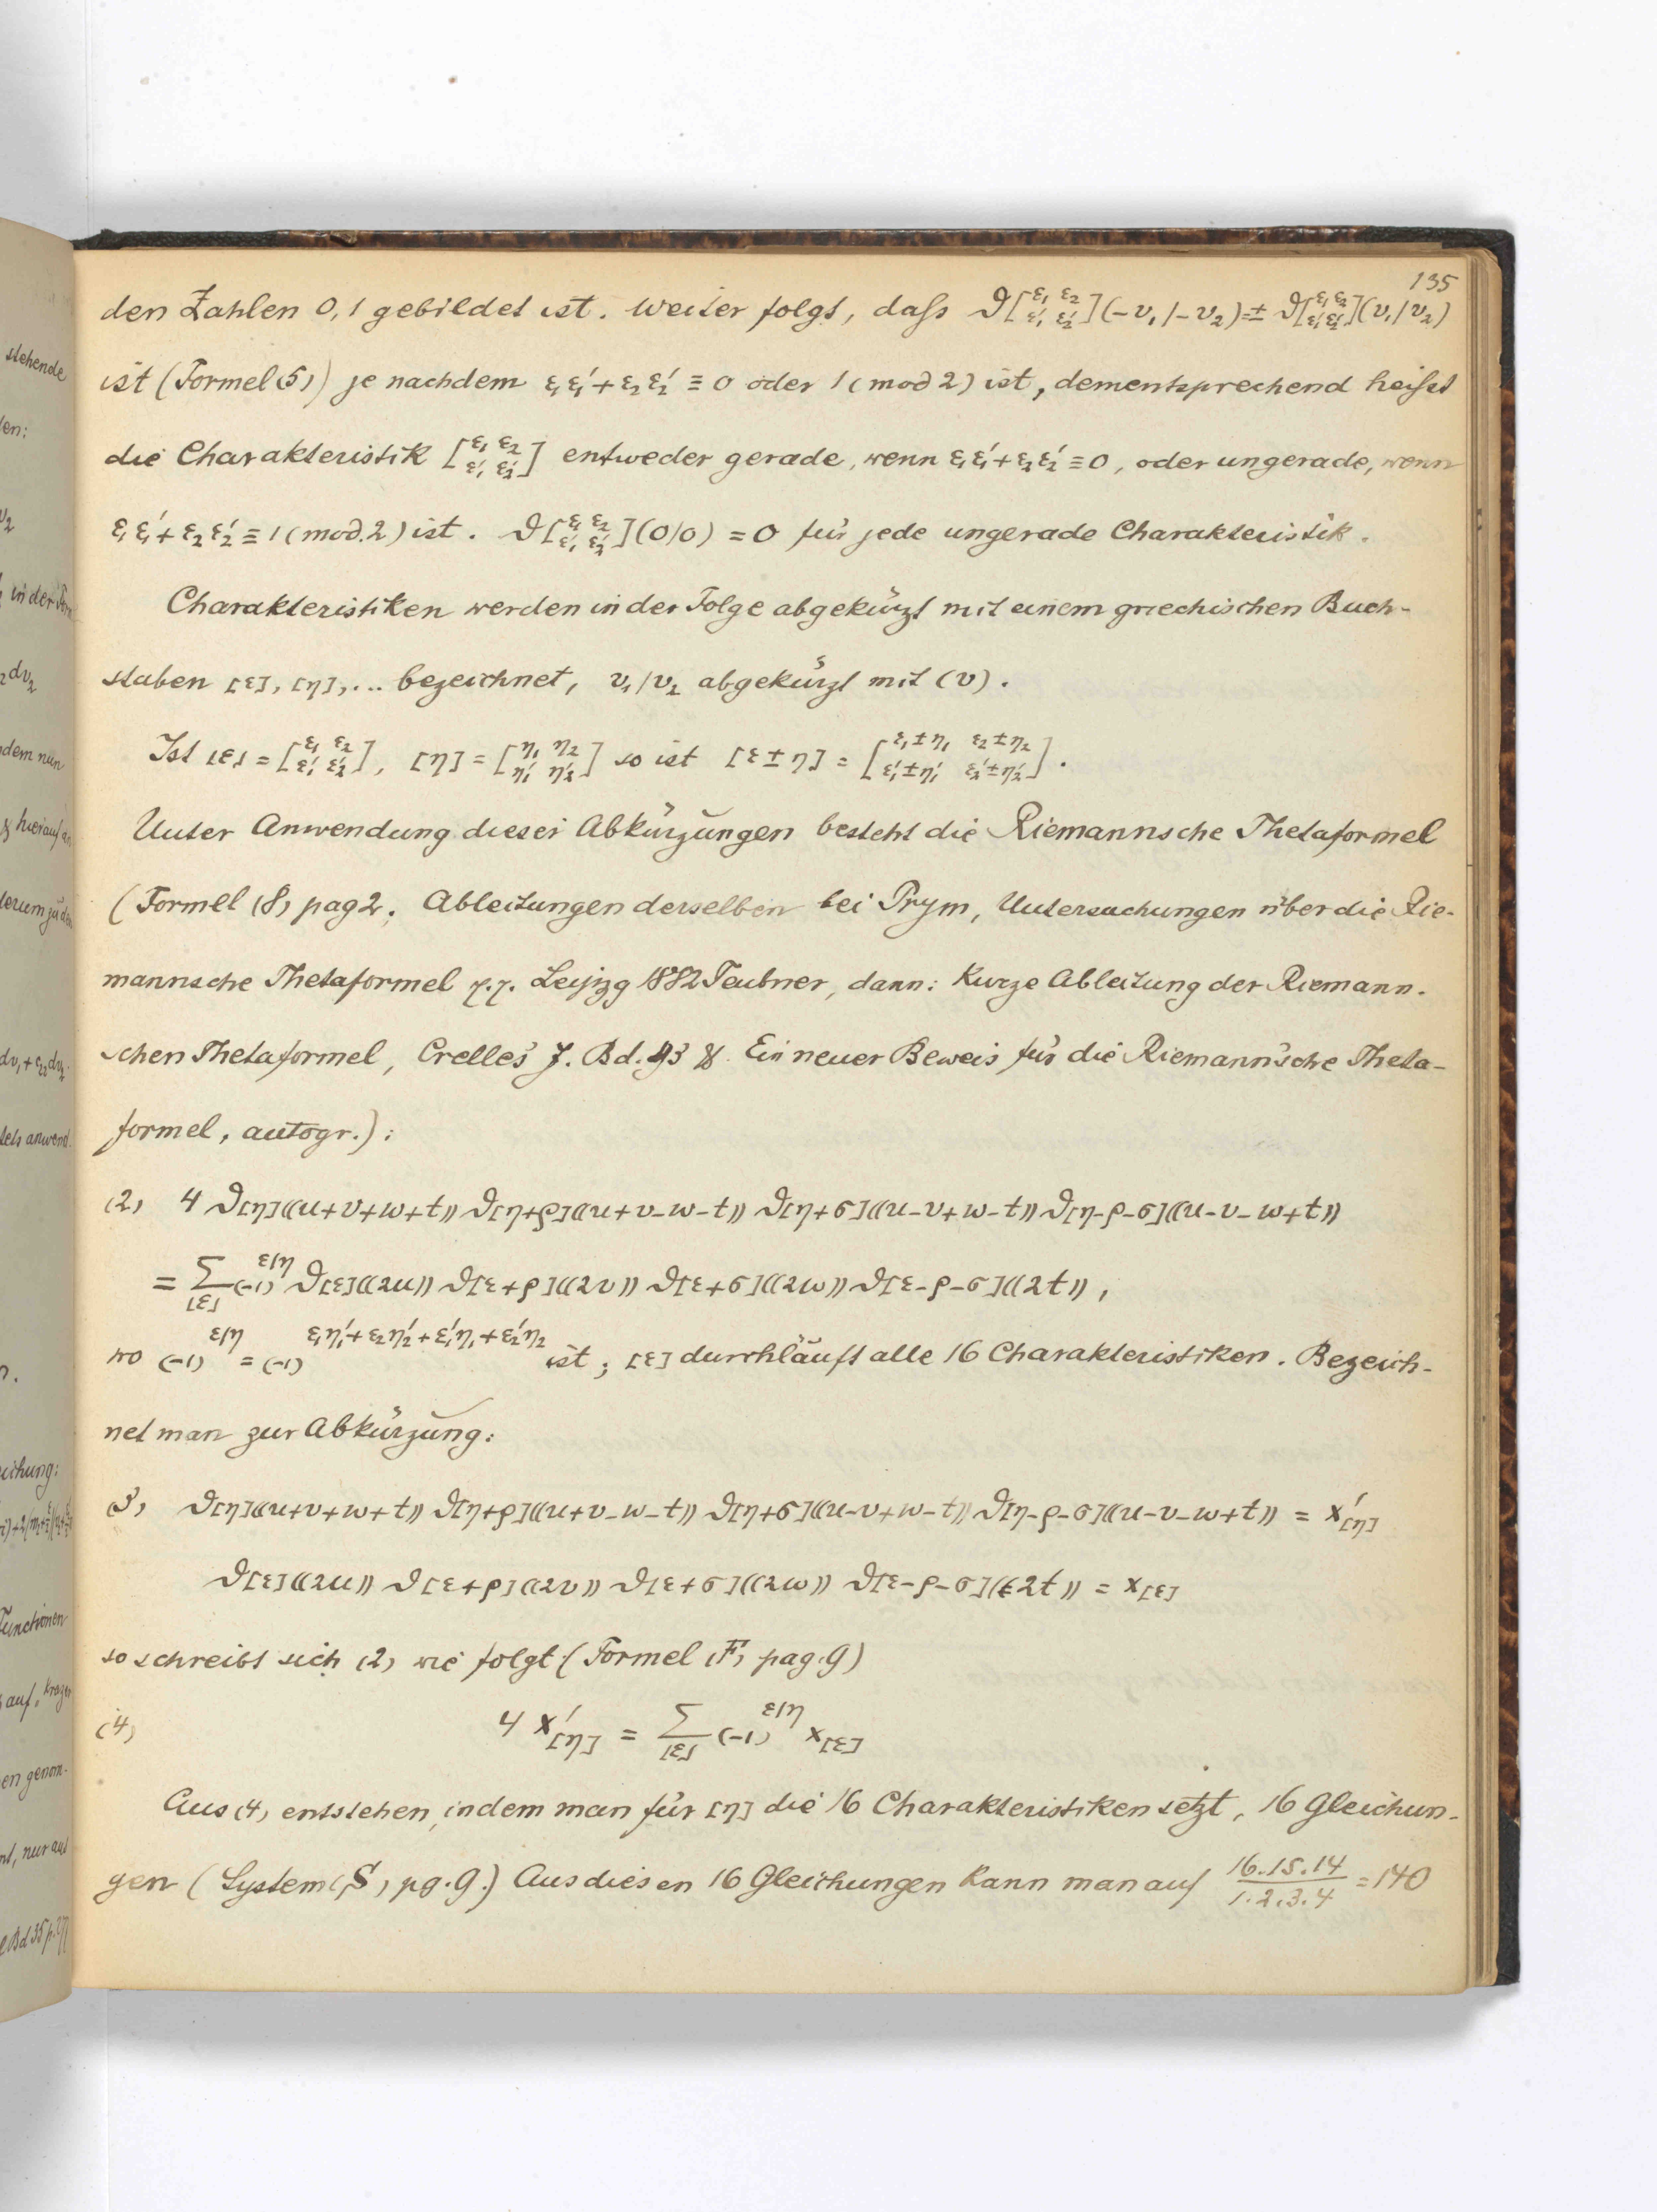 135
den Zahlen 0,1 gebildet ist. Weiter folgt, daſs ϑ[ε₁ ε₂ / ε₁′ ε₂′](-v₁/-v₂)=± ϑ[ε₁ ε₂ / ε₁′ ε₂′](v₁/v₂)
ist (Formel (5)) je nachdem ε₁ε₁′+ε₂ε₂′ ≡ 0 oder 1 (mod 2) ist, dementsprechend heiſst
die Charakteristik [ε₁ ε₂ / ε₁′ ε₂′] entweder gerade, wenn ε₁ε₁′+ε₂ε₂′≡0, oder ungerade, wenn
ε₁ε₁′+ε₂ε₂′≡1 (mod.2) ist. ϑ[ε₁ ε₂ / ε₁′ ε₂′](0/0) = 0 für jede ungerade Charakteristik.
Charakteristiken werden in der Folge abgekürzt mit einem griechischen Buch-
staben [ε], [η],... bezeichnet, v₁/v₂ abgekürzt mit (v).
Ist [ε] = [ε₁ ε₂ / ε₁′ ε₂′], [η] = [η₁ η₂ / η₁′ η₂′] so ist [ε±η] = [ε₁±η₁ ε₂±η₂ / ε₁′±η₁′ ε₂′±η₂′].
Unter Anwendung dieser Abkürzungen besteht die Riemannsche Thetaformel
(Formel (8) pag 2. Ableitungen derselben bei Prym, Untersuchungen über die Rie-
mannsche Thetaformel Leipzg 1882 Teubner, dann: Kurze Ableitung der Riemann.
schen Thetaformel, Crelle's J. Bd. 93 & Ein neuer Beweis für die Riemann'sche Theta-
formel, autogr.):
(2) 4 ϑ[η]((u+v+w+t)) ϑ[η+ρ]((u+v-w-t)) ϑ[η+σ]((u-v+w-t)) ϑ[η-ρ-σ]((u-v-w+t))
= Σ[ε] (-1)^ε/η ϑ[ε]((2u)) ϑ[ε+ρ]((2v)) ϑ[ε+σ]((2w)) ϑ[ε-ρ-σ]((2t)),
wo (-1)^ε/η = (-1)^ε₁η₁′+ε₂η₂′+ε₁′η₁+ε₂′η₂ ist; [ε] durchläuft alle 16 Charakteristiken. Bezeich-
net man zur Abkürzung:
(3) ϑ[η]((u+v+w+t)) ϑ[η+ρ]((u+v-w-t)) ϑ[η+σ]((u-v+w-t)) ϑ[η-ρ-σ]((u-v-w+t)) = x′[η]
ϑ[ε]((2u)) ϑ[ε+ρ]((2v)) ϑ[ε+σ]((2w)) ϑ[ε-ρ-σ]((2t)) = x[ε]
so schreibt sich (2) wie folgt (Formel (F) pag. 9)
(4) 4 x′[η] = Σ[ε] (-1)^ε/η x[ε]
Aus (4) entstehen, indem man für [η] die 16 Charakteristiken setzt, 16 Gleichun-
gen (System (S) pg. 9.) Aus diesen 16 Gleichungen kann man auf 16.15.14 / 1.2.3.4 = 140